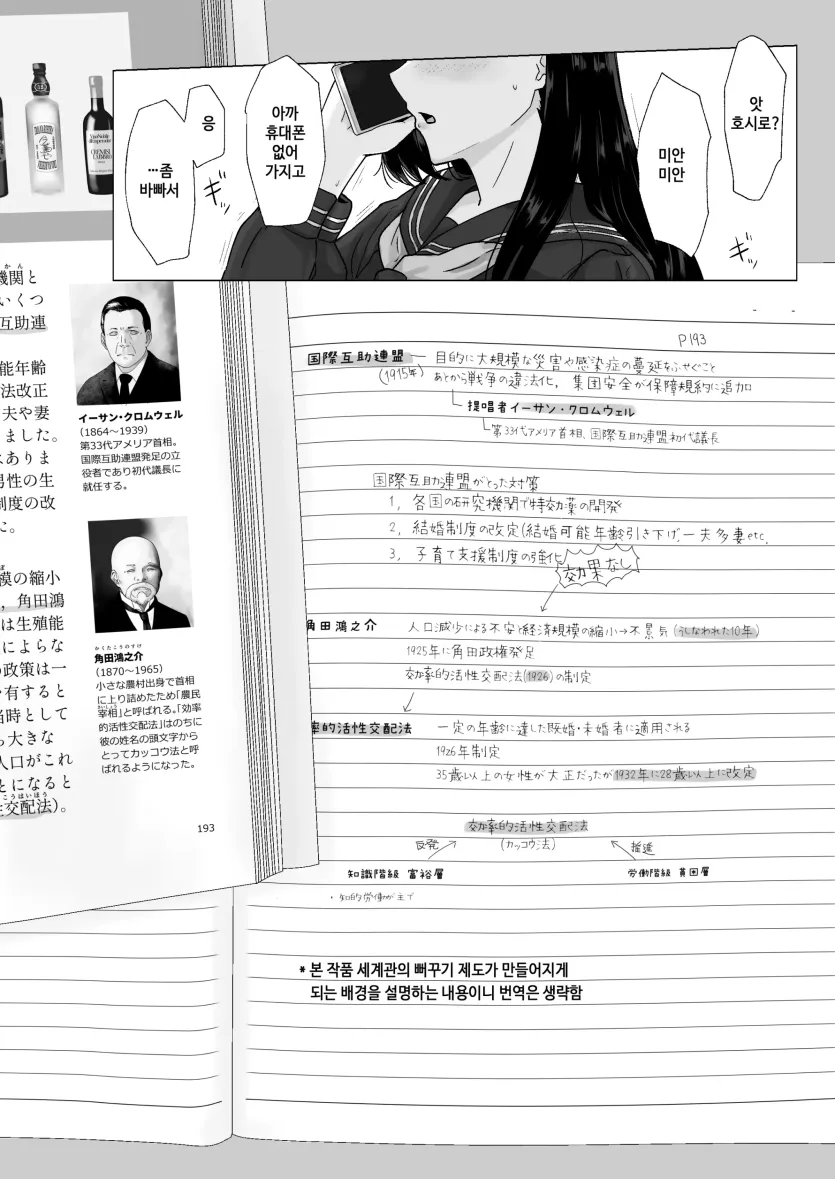 앗
호시로?
미안
미안
아까
휴대폰
없어
가지고
응
…좀
바빠서
かん
機関と
いくつ
互助連
能年齢
法改正
夫や妻
ました。
はありま
男性の生
制度の改
た。
模の縮小
，角田鴻
は生殖能
によらな
の政策は一
有すると
当時として
も大きな
人口がこれ
とになると
こうはいほう
性交配法)。
イーサン・クロムウェル
(1864～1939)
第33代アメリア首相。
国際互助連盟発足の立
役者であり初代議長に
就任する。
かくたこうのすけ
角田鴻之介
(1870～1965)
小さな農村出身で首相
に上り詰めたため「農民
さいしょう
宰相」と呼ばれる。「効率
的活性交配法」はのちに
彼の姓名の頭文字から
とってカッコウ法と呼
ばれるようになった。
193
P193
国際互助連盟 目的に大規模な災害や感染症の蔓延をふせぐこと
(1915年) あとから戦争の違法化，集団安全が保障規約に追加
提唱者イーサン・クロムウェル
第33代アメリア首相、国際互助連盟初代議長
国際互助連盟がとった対策
1，各国の研究機関で特効薬の開発
2，結婚制度の改定(結婚可能年齢引き下げ，一夫多妻etc.
3，子育て支援制度の強化
効果なし
角田鴻之介 人口減少による不安と経済規模の縮小→不景気(うしなわれた10年)
1925年に角田政権発足
効率的活性交配法(1926)の制定
率的活性交配法 一定の年齢に達した既婚・未婚者に適用される
1926年制定
35歳以上の女性が大正だったが1932年に28歳以上に改定
効率的活性交配法
反発 (カッコウ法) 推進
知識階級 富裕層 労働階級 貧困層
・知的労働が主で
* 본 작품 세계관의 뻐꾸기 제도가 만들어지게
되는 배경을 설명하는 내용이니 번역은 생략함